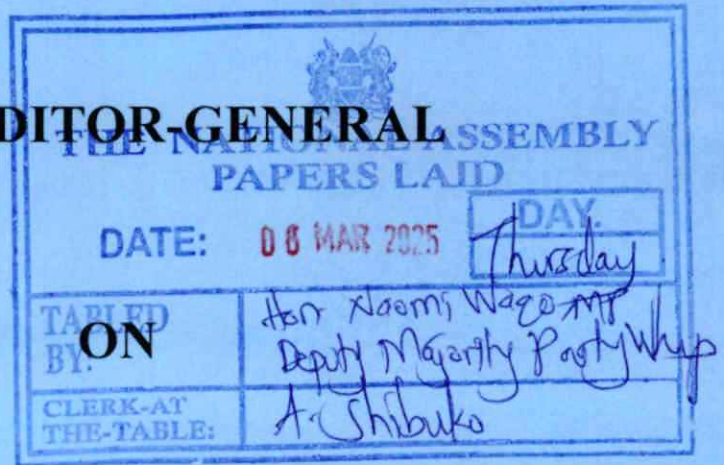 DITOR-GENERAL
THE NATIONAL ASSEMBLY
PAPERS LAID
DATE: 06 MAR 2025
DAY.
Thursday
TABLED BY:
Hon Naomi Waqo MP
Deputy Majority Party Whip
ON
CLERK-AT THE-TABLE:
A. Shibuko